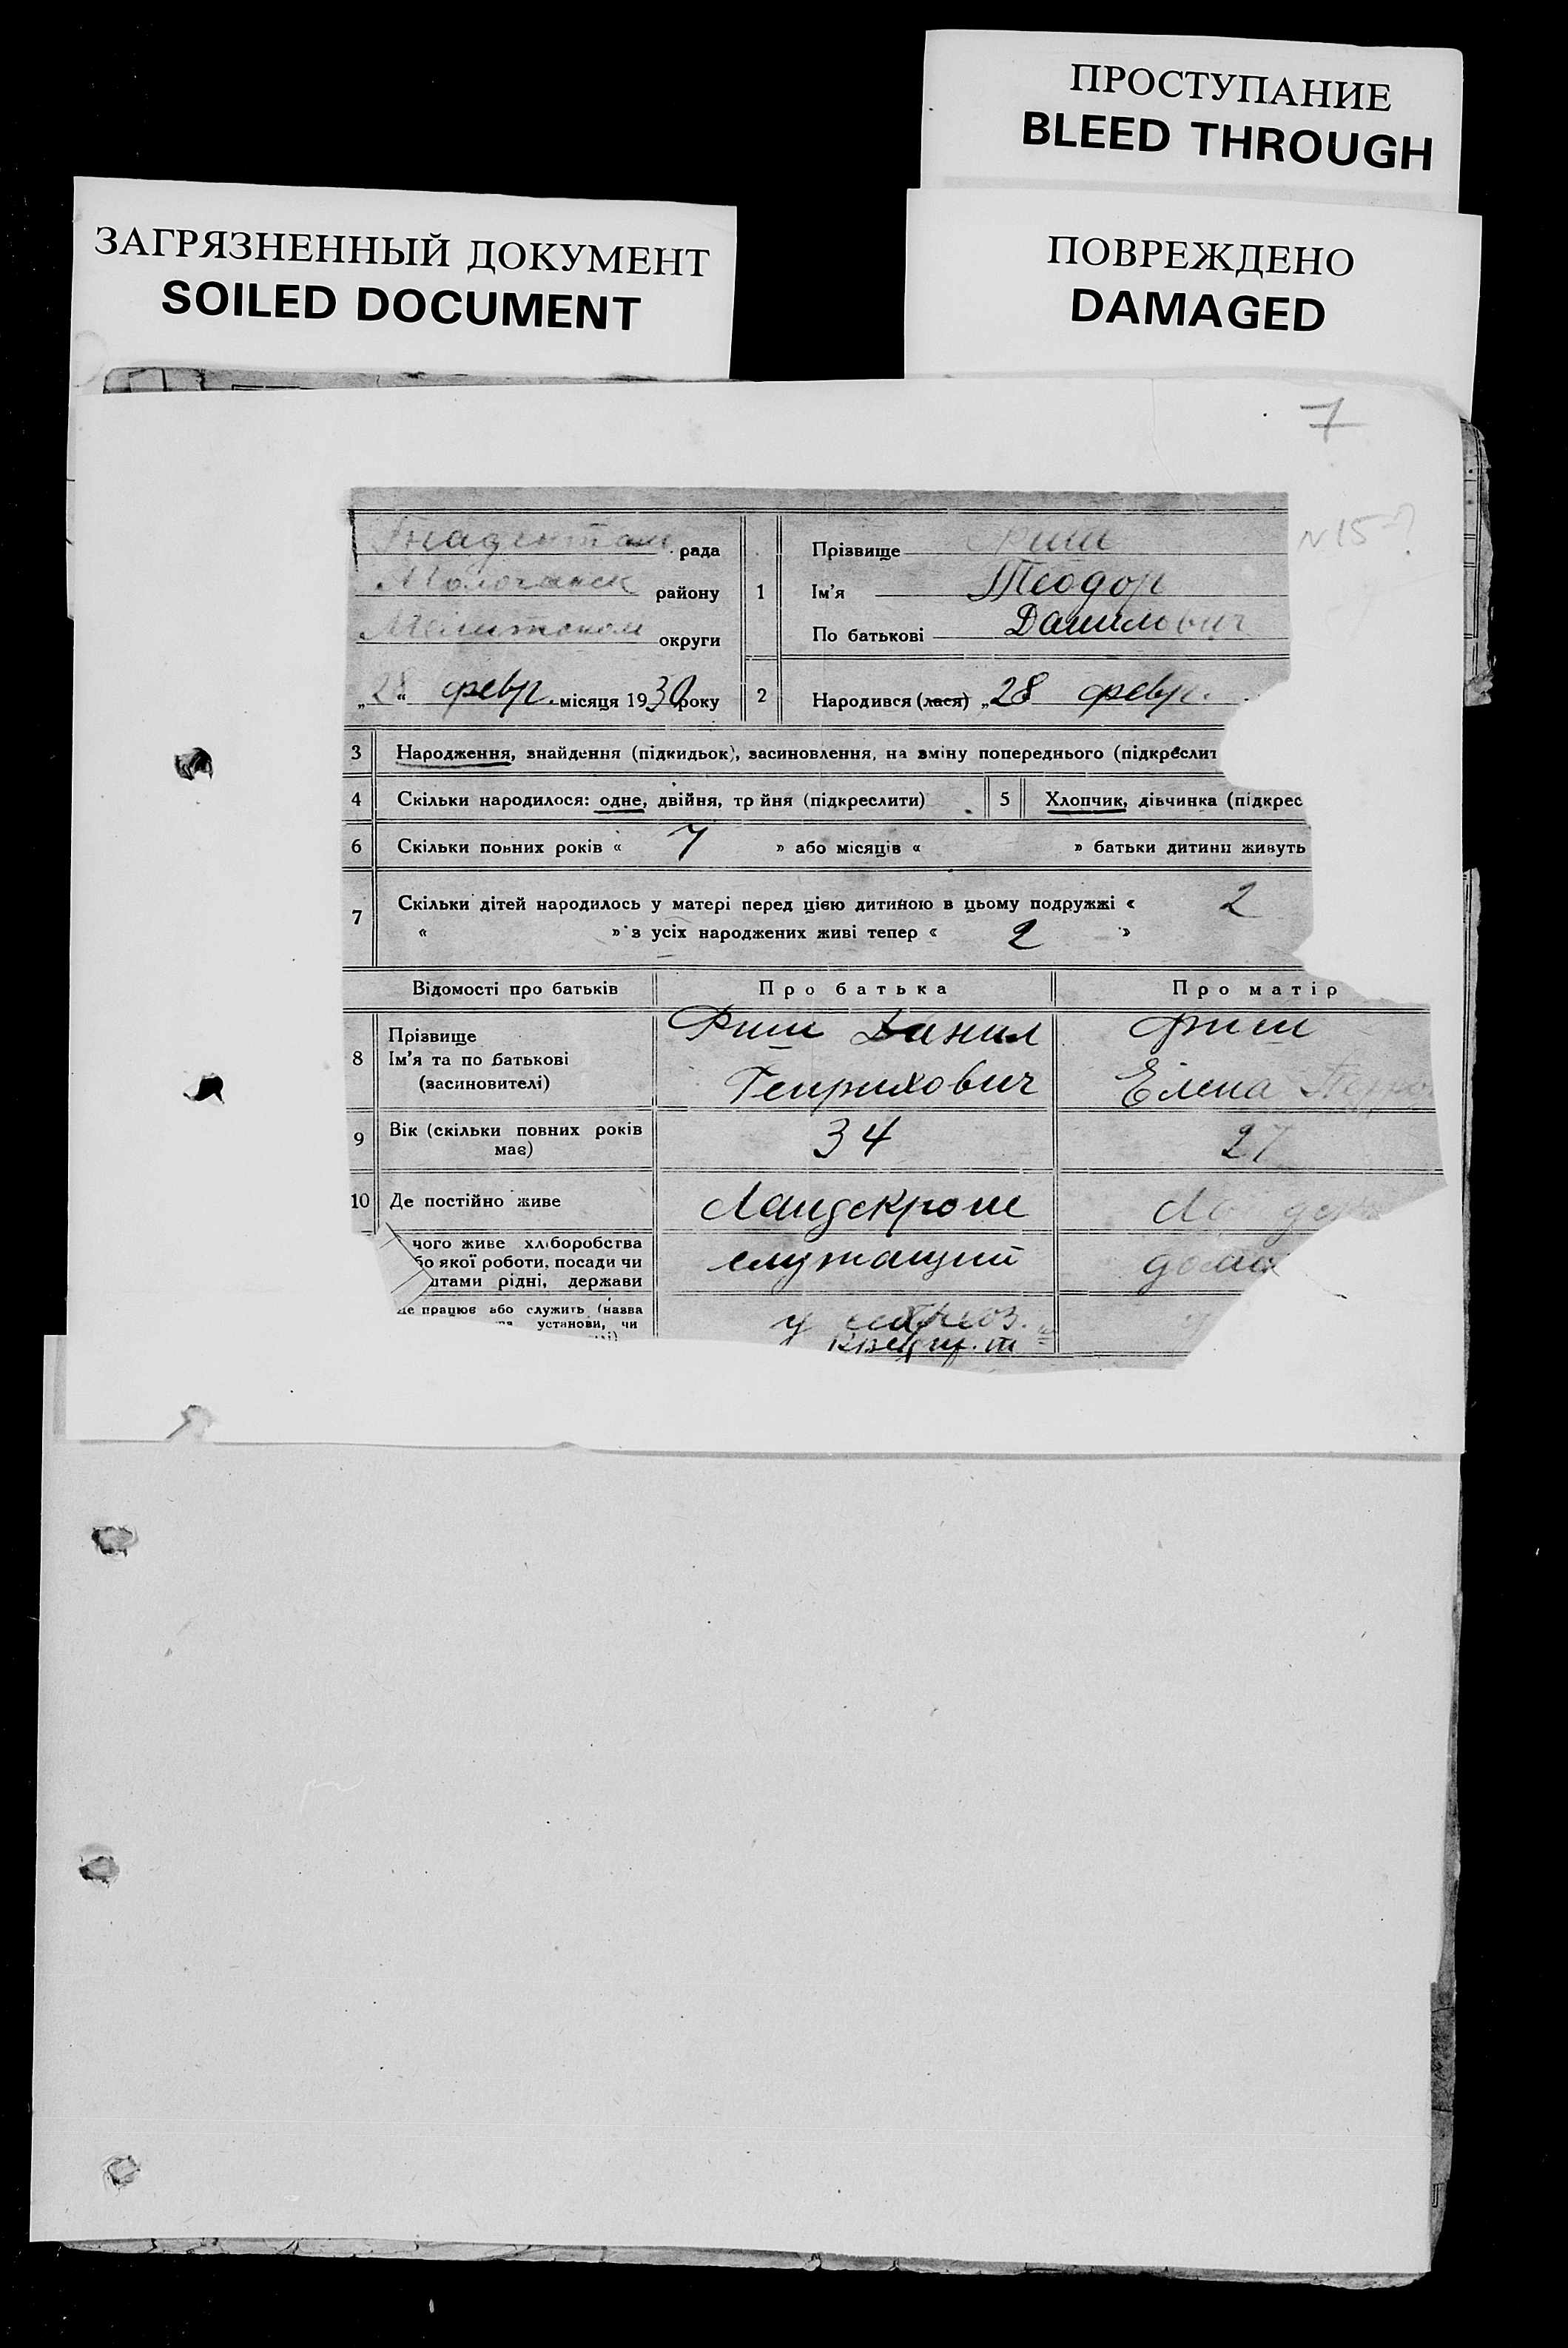 ПРОСТУПАНИЕ
BLEED THROUGH
ЗАГРЯЗНЕННЫЙ ДОКУМЕНТ
SOILED DOCUMENT
ПОВРЕЖДЕНО
DAMAGED
7
N 15-?
рада
Молочанск району
округи
„28“ февр. місяця 1930 року
1
Прізвище Фиш
Ім'я Теодор
По батькові Данилович
2 Народився (лася) „28 февр.
3 Народження, знайдення (підкидьок), засиновлення, на зміну попереднього (підкреслит
4 Скільки народилося: одне, двійня, трійня (підкреслити)
5 Хлопчик, дівчинка (підкрес
6 Скільки повних років « 7 » або місяців « » батьки дитини живуть
7 Скільки дітей народилось у матері перед цією дитиною в цьому подружжі « 2
« » з усіх народжених живі тепер « 2 »
Відомості про батьків Про батька Про матір
8 Прізвище
Ім'я та по батькові
(засиновителі)
Фиш Данил
Генрихович
Фиш
Елена
9 Вік (скільки повних років
має)
34
27
10 Де постійно живе Ландскроне
чого живе хліборобства
бо якої роботи, посади чи
штами рідні, держави
служащий
де працює або служить (назва
установи, чи
у